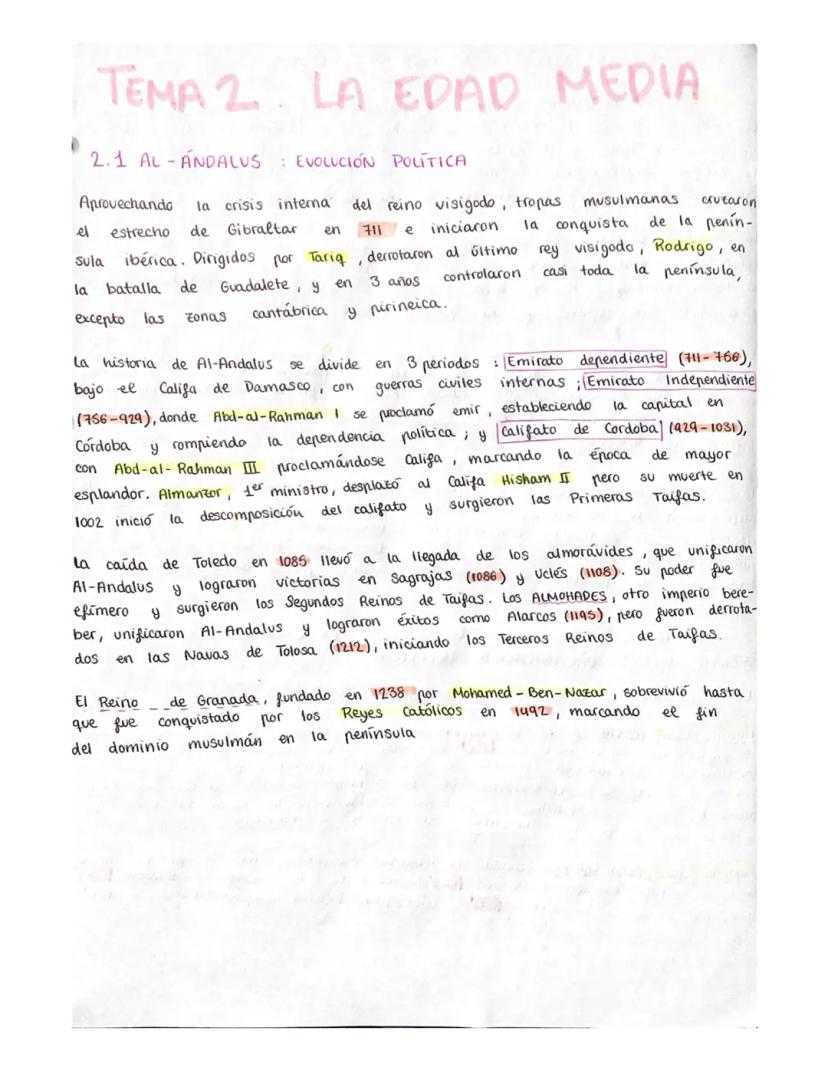 TEMA 2. LA EDAD MEDIA
2.1 AL-ÁNDALUS : EVOLUCIÓN POLÍTICA
Aprovechando la crisis interna del reino visigodo, tropas musulmanas cruzaron
el estrecho de Gibraltar en 711 e iniciaron la conquista de la penín-
sula ibérica. Dirigidos por Tariq, derrotaron al último rey visigodo, Rodrigo, en
la batalla de Guadalete, y en 3 años controlaron casi toda la península,
excepto las zonas cantábrica y pirineica.
La historia de Al-Andalus se divide en 3 periodos : Emirato dependiente (711-766),
bajo el Califa de Damasco, con guerras civiles internas ; Emirato Independiente
(756-929), donde Abd-al-Rahman I se proclamó emir, estableciendo la capital en
Córdoba y rompiendo la dependencia política ; y Califato de Cordoba (929-1031),
con Abd-al-Rahman III proclamándose Califa, marcando la época de mayor
esplandor. Almanzor, 1er ministro, desplazó al Califa Hisham II pero su muerte en
1002 inició la descomposición del califato y surgieron las Primeras Taifas.
La caída de Toledo en 1085 llevó a la llegada de los almorávides, que unificaron
Al-Andalus y lograron victorias en Sagrajas (1086) y Uclés (1108). Su poder fue
efímero y surgieron los Segundos Reinos de Taifas. Los ALMOHADES, otro imperio bere-
ber, unificaron Al-Andalus y lograron éxitos como Alarcos (1195), pero fueron derrota-
dos en las Navas de Tolosa (1212), iniciando los Terceros Reinos de Taifas.
El Reino de Granada, fundado en 1238 por Mohamed-Ben-Nazar, sobrevivió hasta
que fue conquistado por los Reyes Católicos en 1492, marcando el fin
del dominio musulmán en la península